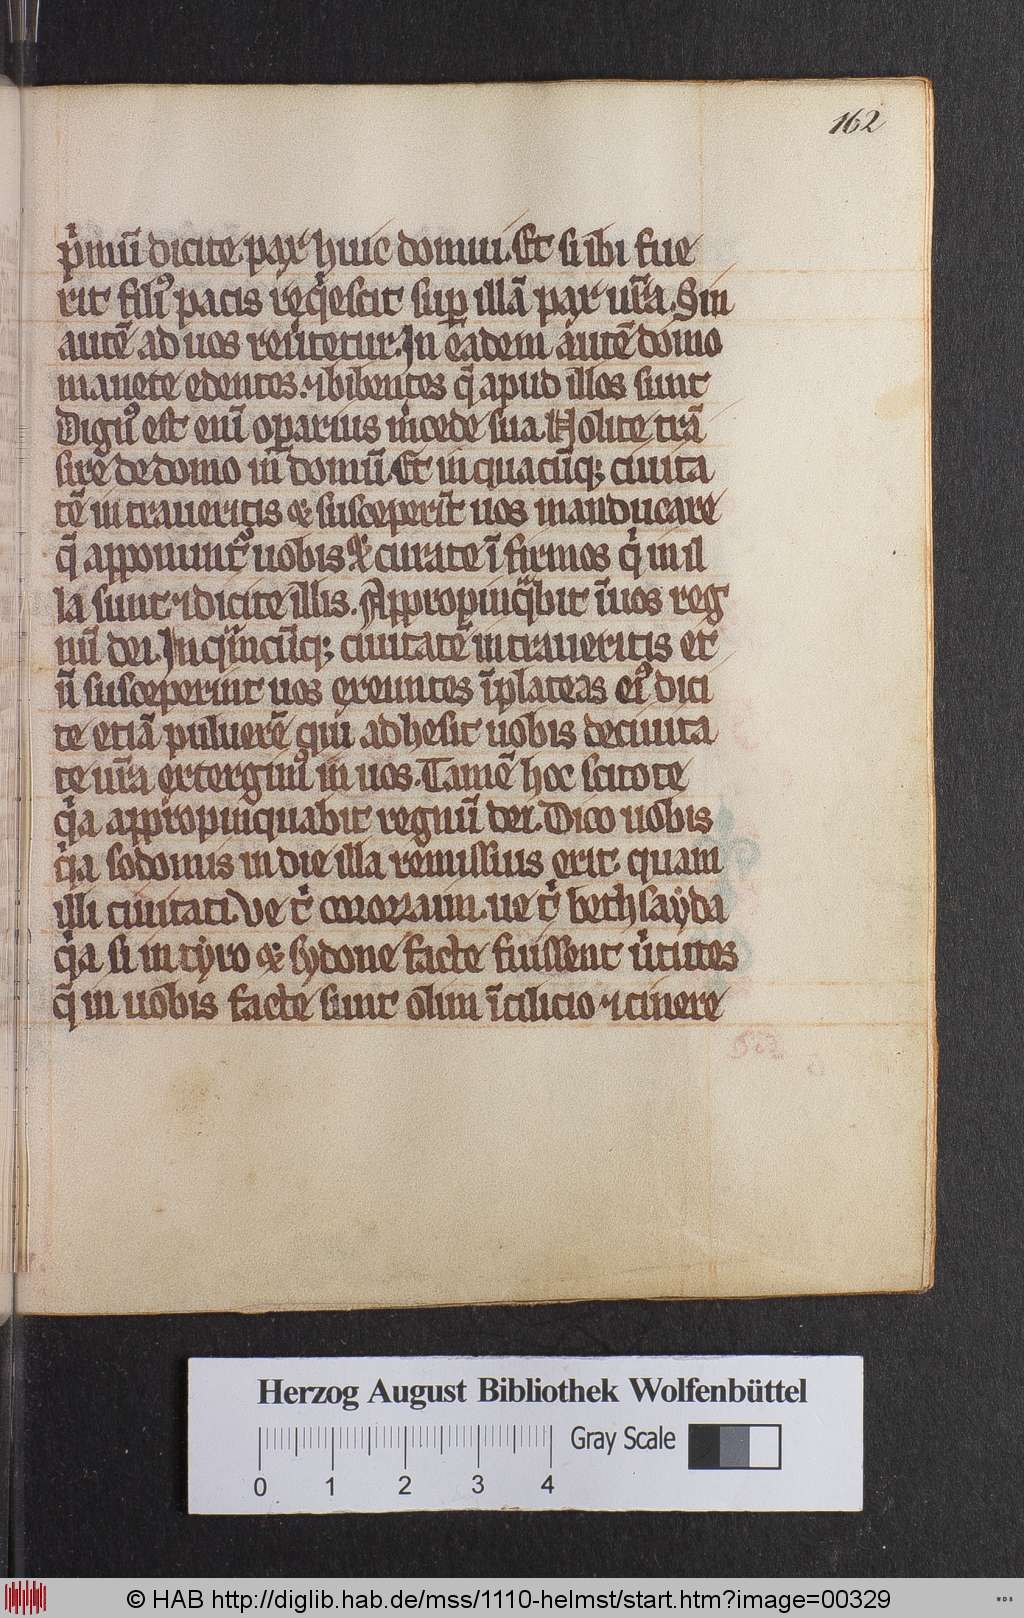 162
p̾imū dicite. pax huic domui. Et si ibi fue
rit filiꝰ pacis req̾escit suꝑ illā pax ur̄a. Sin
autē ad uos reu̾tetur. In eadem autē domo
manete edentes. ⁊ bibentes q̄ apud illos sunt
Dignꝰ est enī oꝑarius m̾cede sua. Nolite trā
sire de domo in domū. Et in quacūq; ciuita
tē intraueritis ⁊ susceperīt uos manducare
q̄ apponunt᷑ uobis ⁊ curate īfirmos q̾ in il
la sunt ⁊ dicite illis. Appropinq̾bit ī uos reg
nū dei. In q̾mcūq; ciuitatē intraueritis et
n̄ susceperint uos exeuntes ī plateas eiꝰ dici
te etiā puluerē qui adhesit uobis de ciuita
te ur̄a extergimꝰ in uos. Tamē hoc scitote
q̾a appropinquabit regnū dei. Dico uobis
q̾a sodomis in die illa remissius erit. quam
illi ciuitati. Ve t̾ corozaim. ue t̾ bethsayda
q̾a si in tyro ⁊ sydone facte fuissent u̾tutes
q̄ in uobis facte sunt olim ī cilicio ⁊ cinere
Herzog August Bibliothek Wolfenbüttel
Gray Scale
0 1 2 3 4
© HAB http://diglib.hab.de/mss/1110-helmst/start.htm?image=00329